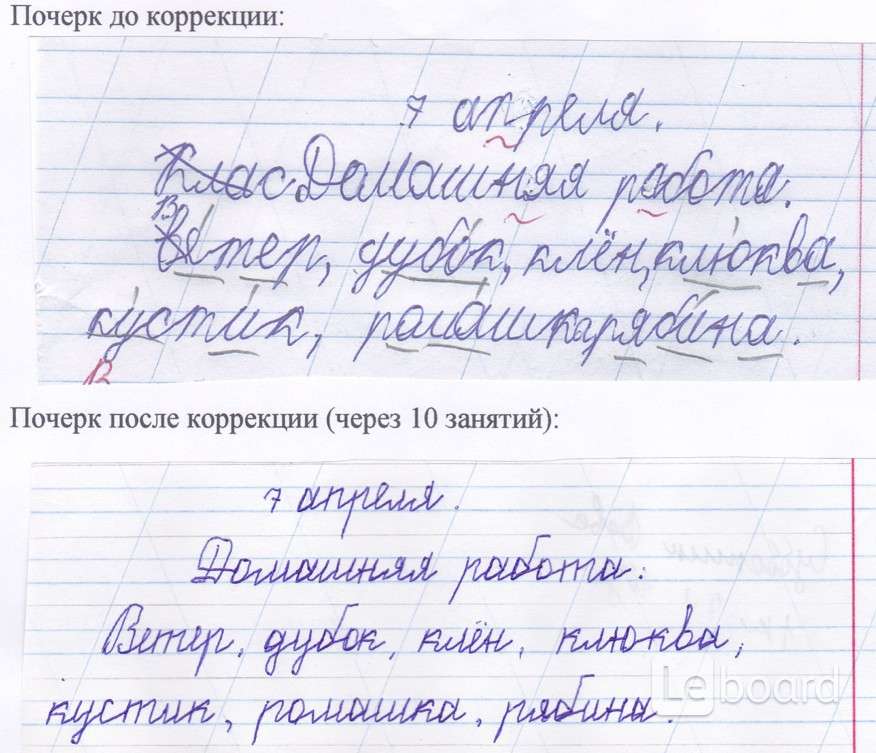 Почерк до коррекции:
7 апреля.
Клас Домашняя работа.
Ветер, дубок, клён, клюква,
кустик, ромашка, рябина.
В
Почерк после коррекции (через 10 занятий):
7 апреля.
Домашняя работа.
Ветер, дубок, клён, клюква,
кустик, ромашка, рябина.
Le board